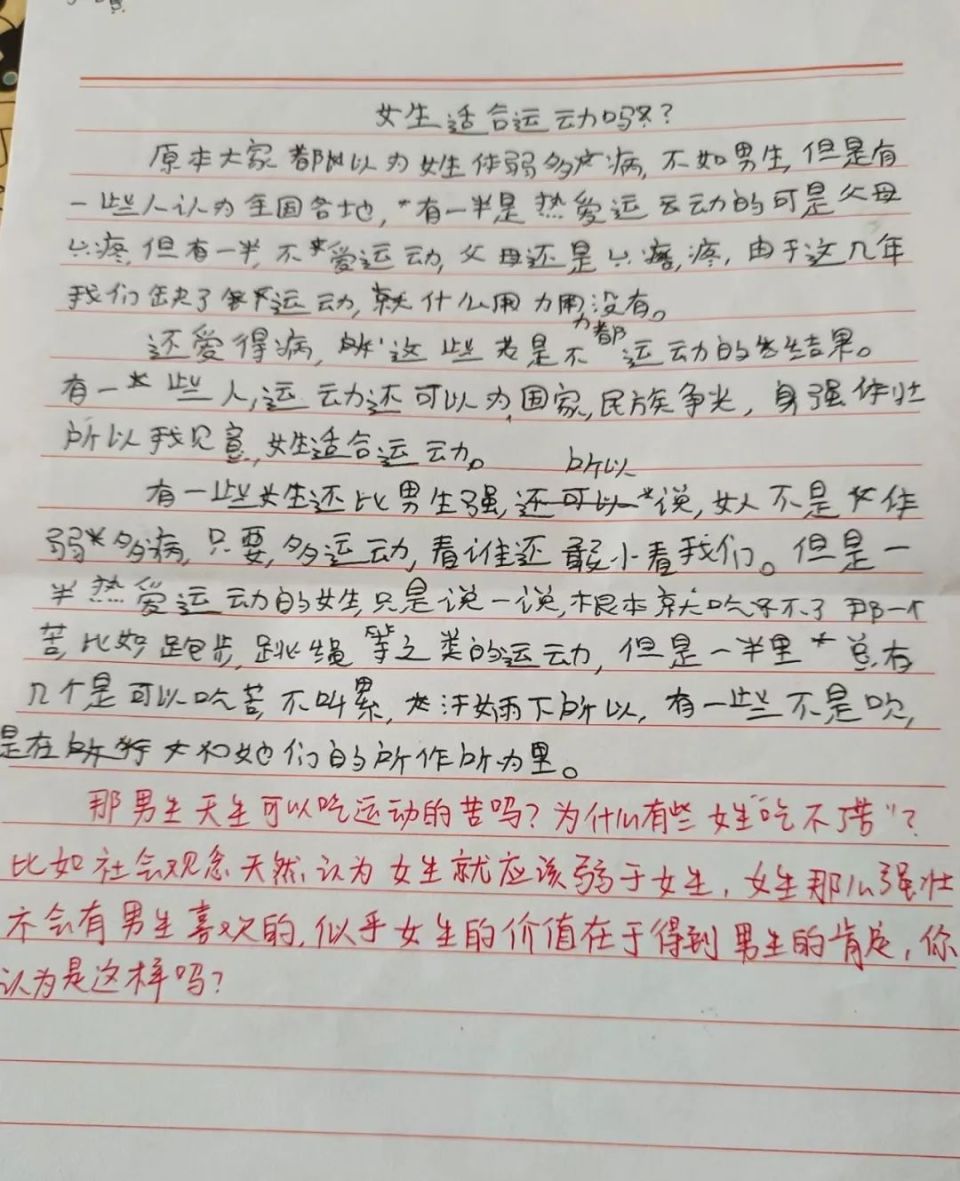 女生适合运动吗?
原本大家都以为女生体弱多病,不如男生,但是有
一些人认为全国各地,有一半是热爱运动的可是父母
心疼,但有一半不爱运动,父母还是心疼,由于这几年
我们缺了运动,就什么用力用没有。
还爱得病,这些老是不力都运动的结果。
有一些人,运动还可以为国家,民族争光,身强体壮
所以我见意,女生适合运动。
有一些女生还比男生强,所以说,女人不是体
弱多病,只要,多运动,看谁还敢小看我们。但是一
半热爱运动的女生,只是说一说,根本就吃不了那一个
苦,比如跑步,跳绳等之类的运动,但是一半里总有
几个是可以吃苦,不叫累,汗如雨下所以,有一些不是吹,
是在和她们的所作所为里。
那男生天生可以吃运动的苦吗?为什么有些女生"吃不了苦"?
比如社会观念天然认为女生就应该弱于女生,女生那么强壮
不会有男生喜欢的,似乎女生的价值在于得到男生的肯定,你
认为是这样吗?